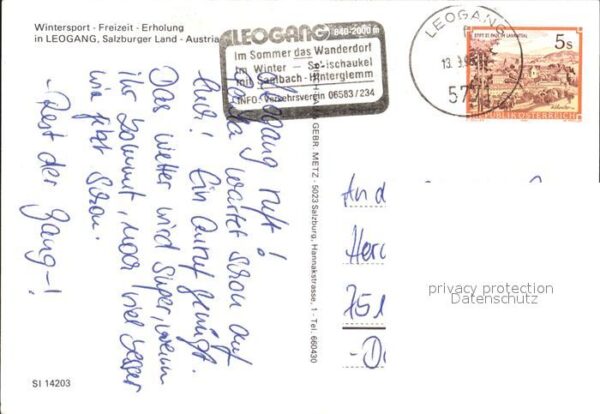 Wintersport · Freizeit · Erholung
in LEOGANG, Salzburger Land - Austria
LEOGANG 840-2000 m
Im Sommer das Wanderdorf
im Winter - Schischaukel
mit Saalbach-Hinterglemm
INFO: Verkehrsverein 06583/234
LEOGANG
13. 9.
577
STIFT ST. PAUL IM LAVANTTAL
5 s
REPUBLIK ÖSTERREICH
Leogang ruft!
wartet schon auf
Euch! Ein Anruf genügt.
Das Wetter wird super, wenn
ihr kommt, noch viel besser
wie jetzt schon.
- Rest der Gang -!
GEBR. METZ · 5023 Salzburg, Hannakstrasse, 1 - Tel. 660430
And
Her
751
-D
privacy protection
Datenschutz
SI 14203